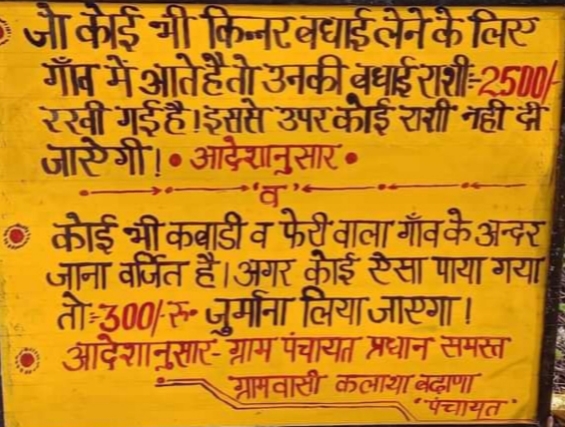 जो कोई भी किन्नर बधाई लेने के लिए
गाँव में आते है तो उनकी बधाई राशी=2500/-
रखी गई है। इससे उपर कोई राशी नही दी
जाएगी। • आदेशानुसार •
व
कोई भी कबाडी व फेरी वाला गाँव के अन्दर
जाना वर्जित है। अगर कोई ऐसा पाया गया
तो=300/-रु• जुर्माना लिया जाएगा।
आदेशानुसार- ग्राम पंचायत प्रधान समस्त
ग्रामवासी कलाया बढाणा
"पंचायत"